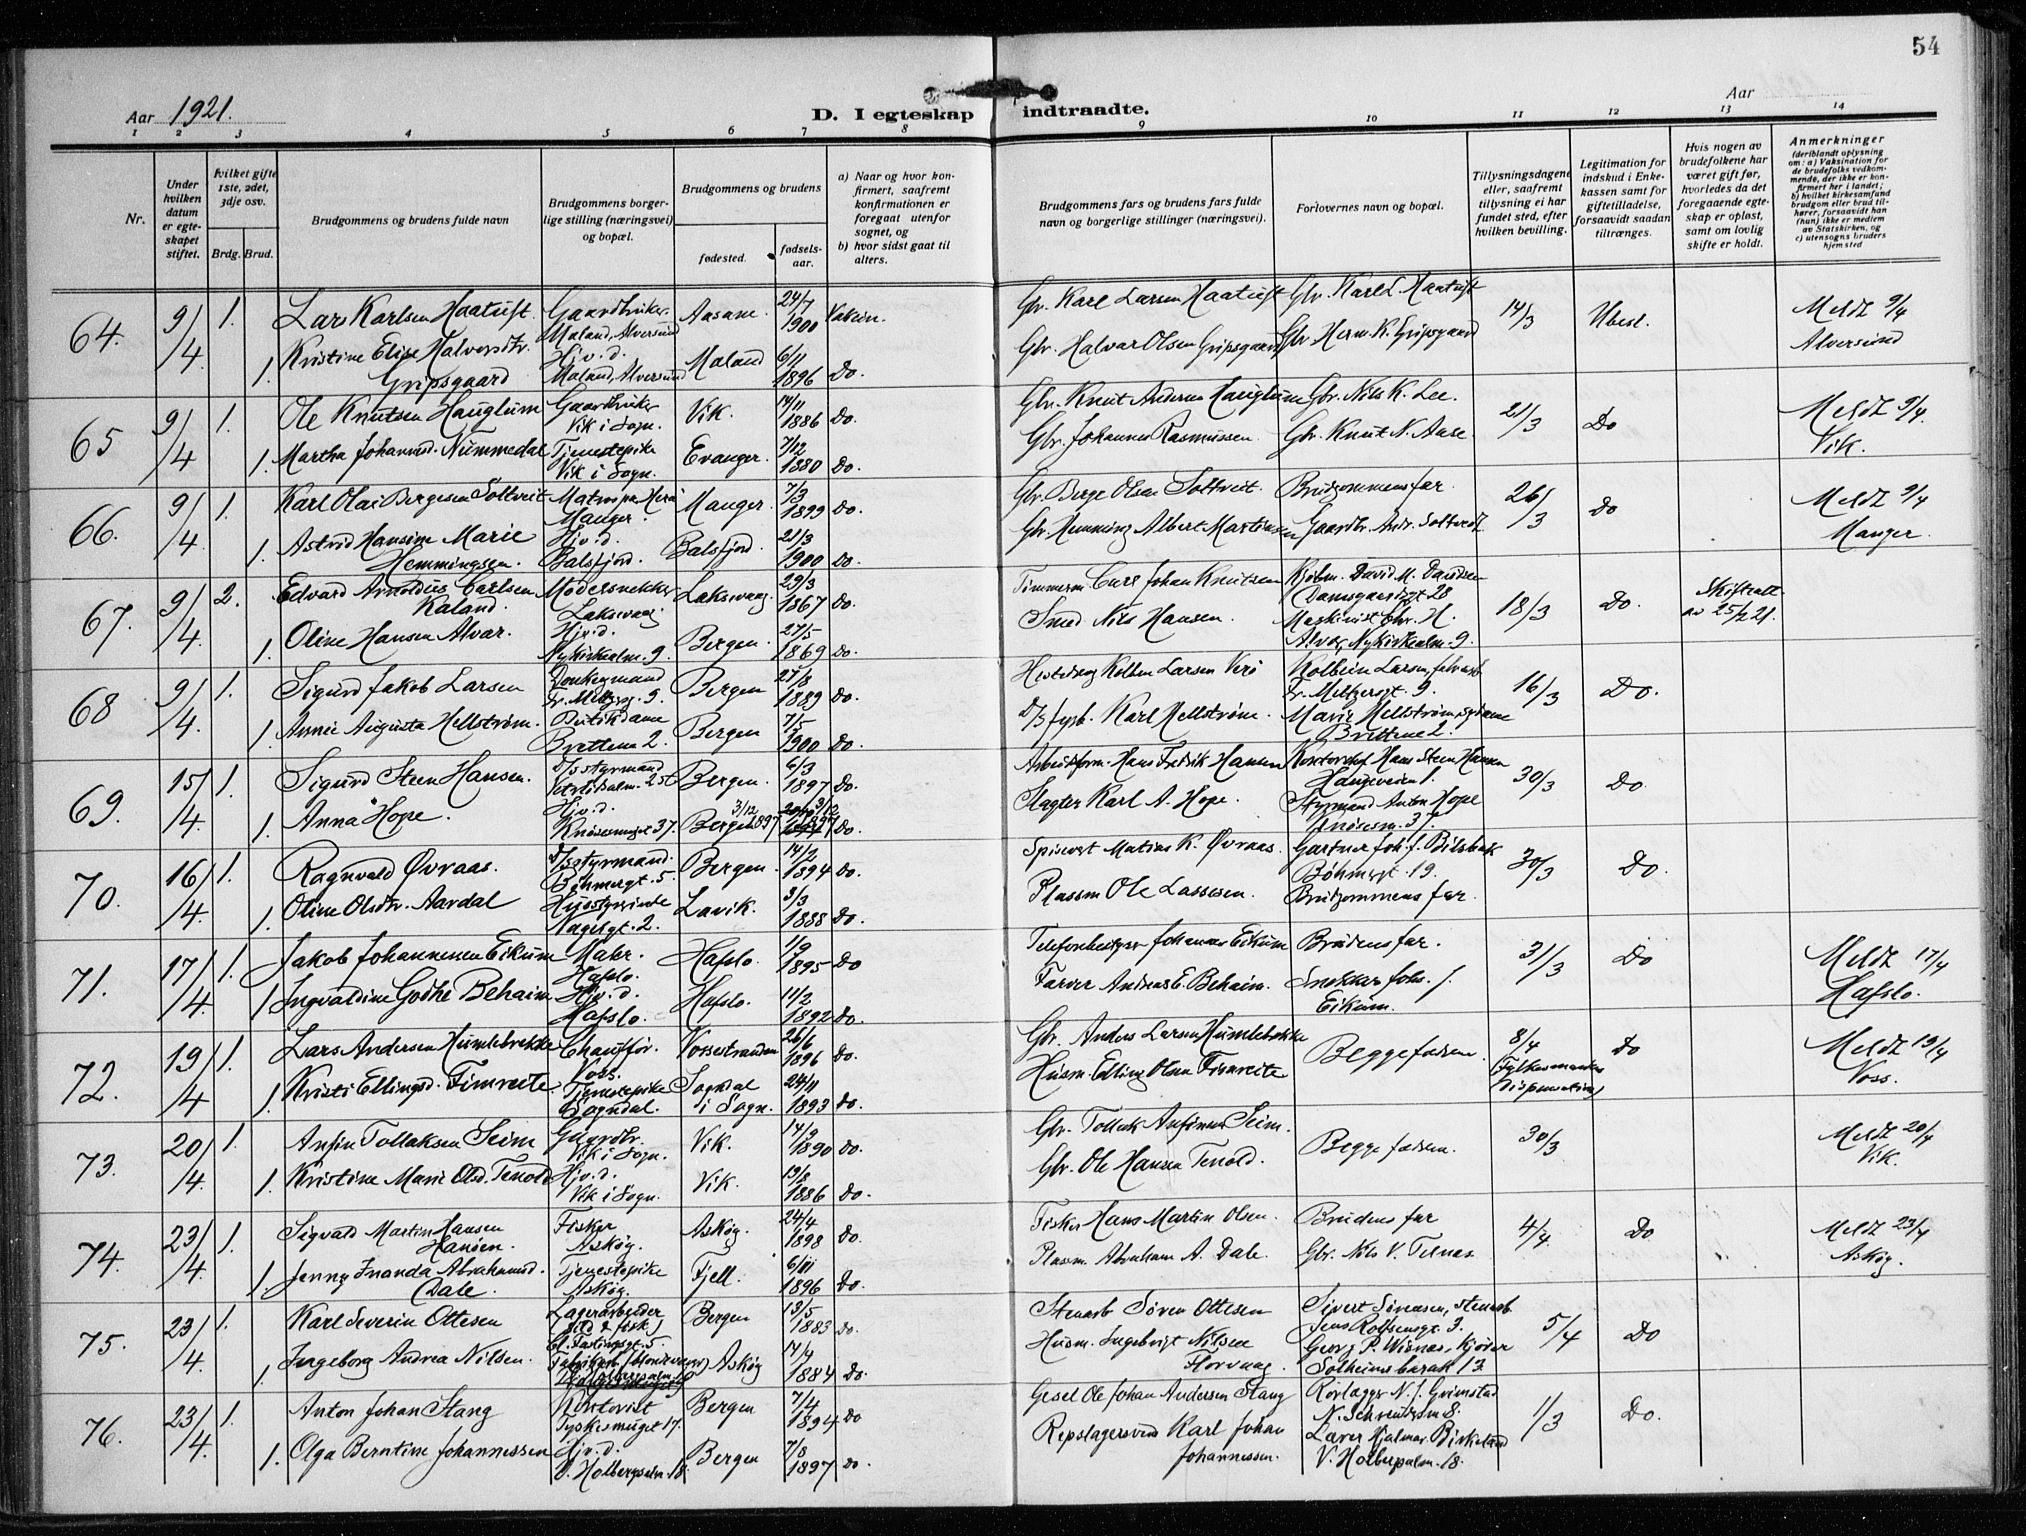 54
Aar 1921.
D. I egteskap indtraadte.
Aar
1 2 3 4 5 6 7 8 9 10 11 12 13 14
Nr.
Under hvilken datum er egteskapet stiftet.
Hvilket gifte 1ste, 2det, 3dje osv.
Brdg. Brud.
Brudgommens og brudens fulde navn
Brudgommens borgerlige stilling (næringsvei) og bopæl.
Brudgommens og brudens
fødested.
fødselsaar.
a) Naar og hvor konfirmert, saafremt konfirmationen er foregaat utenfor sognet, og
b) hvor sidst gaat til alters.
Brudgommens fars og brudens fars fulde navn og borgerlige stillinger (næringsvei).
Forlovernes navn og bopæl.
Tillysningsdagene eller, saafremt tillysning ei har fundet sted, efter hvilken bevilling.
Legitimation for indskud i Enkekassen samt for giftetilladelse, forsaavidt saadan tiltrænges.
Hvis nogen av brudefolkene har været gift før, hvorledes da det foregaaende egteskap er opløst, samt om lovlig skifte er holdt.
Anmerkninger
(deriblandt oplysning om: a) Vaksination for de brudefolks vedkommende, der ikke er konfirmert her i landet; b) hvilket kirkesamfund brudgom eller brud tilhører, forsaavidt han (hun) ikke er medlem av Statskirken, og c) utensogns bruders hjemsted
64. 9/4 1. Lars Karlsen Haatuft. Gaardbruker Maland, Alversund Aasane. 24/7 1900 Vaksin. Gbr. Karl Larsen Haatuft Gbr. Karl L. Haatuft 14/3 Ubesl. Meldt 9/4 Alversund
1. Kristine Elise Halvorsdtr. Gripsgaard Hjv. d. Maland, Alversund Maland 6/11 1896 Do. Gbr. Halvar Olsen Gripsgaard Gbr. Herm. K. Gripsgaard
65 9/4 1. Ole Knutsen Hauglum Gaardbruker Vik i Sogn. Vik. 14/11 1886 Do. Gbr. Knut Andersen Hauglum Gbr. Nils K. Lee. 21/3 Do Meldt 9/4. Vik.
1. Martha Johannesd. Nummedal Tjenestepike Vik i Sogn. Evanger. 7/12 1880 Do. Gbr. Johannes Rasmussen Gbr. Knut N. Aase.
66. 9/4 1. Karl Olai Bergesen Soltveit Manger. Manger. 7/3 1899 Do. Gbr. Berge Olsen Soltveit. Brudgommens far. 26/3 Do Meldt 9/4 Manger.
1. Astrid Hansine Marie Hemmingsen. Hjv. d. Balsfjord. Balsfjord. 21/3 1900 Do. Gbr. Hemming Albert Martinsen Gaardbr. Andr. Soltveit
67. 9/4 2. Edvard Arnoldus Carlsen Kaland. Modelsnekker Laksevaag Laksevaag. 29/3 1867 Do. Tømmerm. Carl Johan Knutsen Kjøbm. David M. Davidsen Damsgaardsgt 28 18/3 Do. Skifteatt. av 25/2 21.
1. Oline Hansen Alvær. Hjv. d. Nykirkealm. 9. Bergen. 27/5 1869 Do. Smed Nils Hansen. Maskinist Chr. H. Alvær, Nykirkealm. 9.
68 9/4 1. Sigurd Jakob Larsen Donkeymand Fr. Meltzersg. 9. Bergen 27/8 1889 Do. Kolben Larsen Fr. Meltzersgt. 9. 16/3 Do.
1. Annie Augusta Hellstrøm. Butikdame Brattene 2. Bergen 7/5 1900 Do. Karl Hellstrøm. Marie Hellstrøm,
69. 15/4 1. Sigurd Steen Hansen. D/s styrmand Bergen. 6/3 1897 Do. Hans Fredrik Hansen Kontorchef Hans Steen Hansen Haugeveien 1. 30/3 Do
1. Anna Hope. Hjv. d. Knøsesmuget 37. Bergen 3/12 1897 Do. Slagter Karl A. Hope. Styrmand Anton Hope Knøsesm. 37.
70. 16/4 1. Ragnvald Øvraas. D/s styrmand. Bøhmergt. 5. Bergen. 14/2 1894 Do. Spisevert Matias K. Øvraas. Gartner Joh. J. Bilsbak Bøhmergt. 19. 30/3 Do.
1. Oline Olsdtr. Aardal Husbestyrerinde Hagelgt. 2. Lavik. 3/3 1888 Do. Plassm Ole Lassesen. Brudgommens far.
71. 17/4 1. Jakob Johannesen Eikum Maler. Hafslo. Hafslo. 1/9 1895 Do Telefonbestyrer Johannes Eikum Brudens far. 31/3 Do Meldt 17/4 Hafslo.
1 Ingvaldine Godke Behaim Hjv. d. Hafslo. Hafslo. 11/2 1892 Do. Farver Andreas E. Behaim. Snekker Johs. J. Eikum.
72. 19/4 1. Lars Andersen Humlebrekke Chauffør. Voss. Vossestranden 26/6 1896 Do. Gbr. Anders Larsen Humlebrekke Begge fædrene. 8/4 Fylkesmandens dispensation Do Meldt 19/4 Voss.
1. Kristi Ellingsd. Fimreite Tjenestepike Sogndal. Sogndal i Sogn. 24/11 1893 Do. Husm. Elling Olsen Fimreite
73. 20/4 1. Anfin Tollaksen Seim Gaardbr. Vik i Sogn. Vik. 14/9 1890 Do. Gbr. Tollak Anfinsen Seim. Begge fædrene. 30/3 Meldt 20/4 Vik.
1. Kristine Marie Olsd. Tenold Hjv. d. Vik i Sogn. Vik. 19/8 1886 Do. Gbr. Ole Hansen Tenold.
74. 23/4 1. Sigvald Martin Hansen Hansen. Fisker Askøy. Askøy. 24/4 1898 Do. Fisker Hans Martin Olsen. Brudens far 4/4. Do Meldt 23/4 Askøy.
1 Jenny Inanda Abrahamsd. Dale. Tjenestepike Askøy. Fjell. 6/11 1896 Do. Plassm. Abraham A. Dale. Gbr. Nils V. Ternes
75. 23/4. 1. Karl Severin Ottesen Lagerarbeider (sild & fisk) Bergen 13/5 1883 Do. Stenarb Søren Ottesen Sivert Sørensen, Stenarb Jens Rolfsensgt. 3. 5/4 Do
1 Ingeborg Andrea Nilsen. Askøy 14/4 1884 Do. Husm. Ingebrigt Nilsen Florvaag. Georg P. Wisnes, Kjører Solheims barak 13
76. 23/4. 1. Anton Johan Stang Kontorist Tyskesmuget 17. Bergen 7/4 1894 Do Ole Johan Andersen Stang Rørlægger N. J. Grimstad 1/3 Do.
1. Olga Berntine Johannessen Hjv. d. V. Holbergsalm. 18. Bergen 7/8 1897 Do. Repslagersvend Karl Johan Johannessen. Lærer Hjalmar Birkeland V. Holbergsalm. 18.